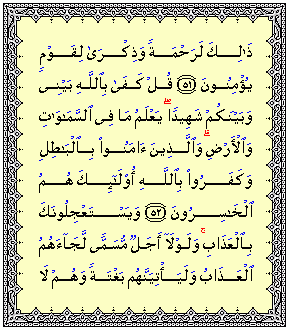 ذَٰلِكَ لَرَحْمَةً وَذِكْرَىٰ لِقَوْمٍ
يُؤْمِنُونَ ﴿٥١﴾ قُلْ كَفَىٰ بِٱللَّهِ بَيْنِى
وَبَيْنَكُمْ شَهِيدًا ۖ يَعْلَمُ مَا فِى ٱلسَّمَٰوَٰتِ
وَٱلْأَرْضِ ۗ وَٱلَّذِينَ ءَامَنُوا۟ بِٱلْبَٰطِلِ
وَكَفَرُوا۟ بِٱللَّهِ أُو۟لَٰٓئِكَ هُمُ
ٱلْخَٰسِرُونَ ﴿٥٢﴾ وَيَسْتَعْجِلُونَكَ
بِٱلْعَذَابِ ۚ وَلَوْلَآ أَجَلٌ مُّسَمًّى لَّجَآءَهُمُ
ٱلْعَذَابُ وَلَيَأْتِيَنَّهُم بَغْتَةً وَهُمْ لَا